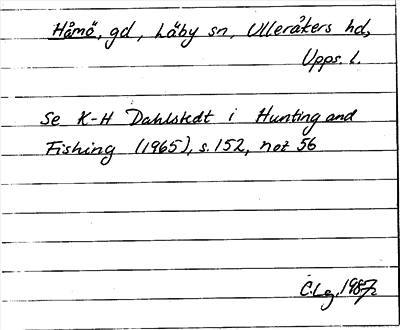 Håmö, gd, Läby sn, Ulleråkers hd,
Upps. l.
Se K-H Dahlstedt i Hunting and
Fishing (1965), s. 152, not 56
C.Lg. 1987